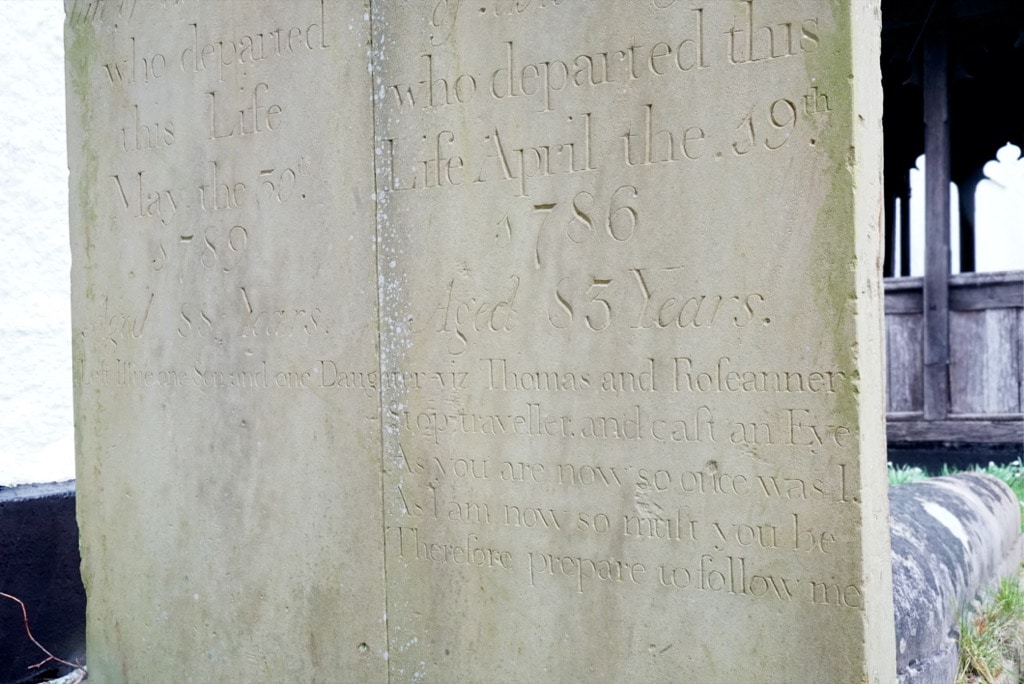 who departed
this Life
May the 30th
1789
Aged 88 Years.
who departed this
Life April the 19th
1786
Aged 83 Years.
Left Iſsue one Son and one Daughter viz Thomas and Roſeanner
Stop traveller and caſt an Eye
As you are now so once was I.
As I am now so muſt you be
Therefore prepare to follow me